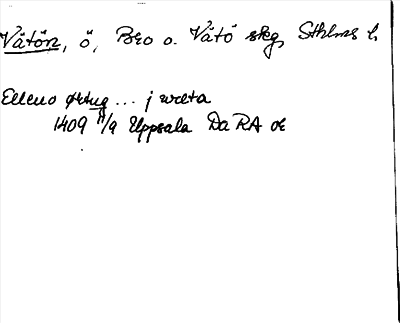 Vätön, ö, Bro o. Vätö skg, Sthlms l.
Elleno ørtug ... j wreta
1409 11/9 Uppsala Da RA or